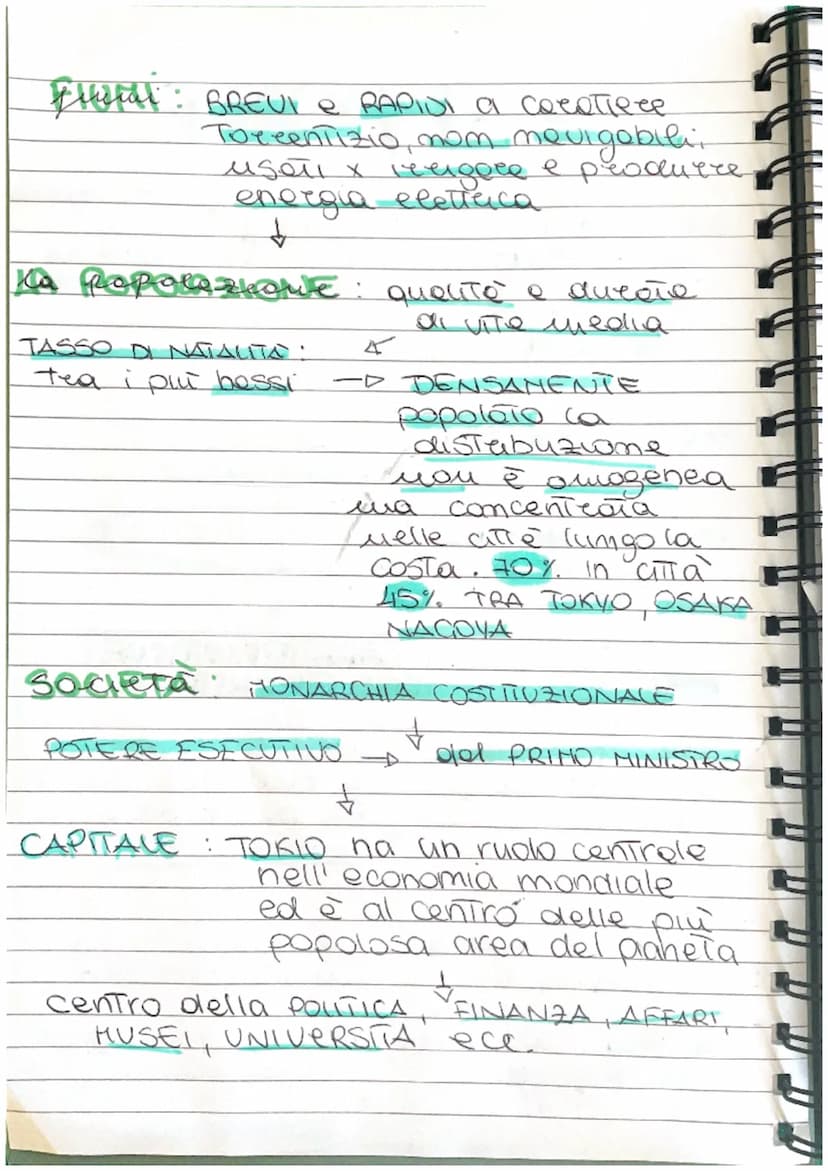 fiumi: BREVI e RAPIDI a carattere
Torrentizio, non navigabili,
usati x irrigare e produrre
energia elettrica
↓
La popolazione: qualità e durata
di vita media
TASSO DI NATALITÀ:
tra i più bassi → DENSAMENTE
popolato la
distribuzione
non è omogenea
ma concentrata
nelle città lungo la
costa. 70% in città
45% TRA TOKYO, OSAKA
NAGOYA
Società: MONARCHIA COSTITUZIONALE
↓
POTERE ESECUTIVO → del PRIMO MINISTRO
↓
CAPITALE: TOKIO ha un ruolo centrale
nell'economia mondiale
ed è al centro delle più
popolosa area del pianeta
↓
centro della POLITICA, FINANZA, AFFARI,
MUSEI, UNIVERSITÀ ecc.